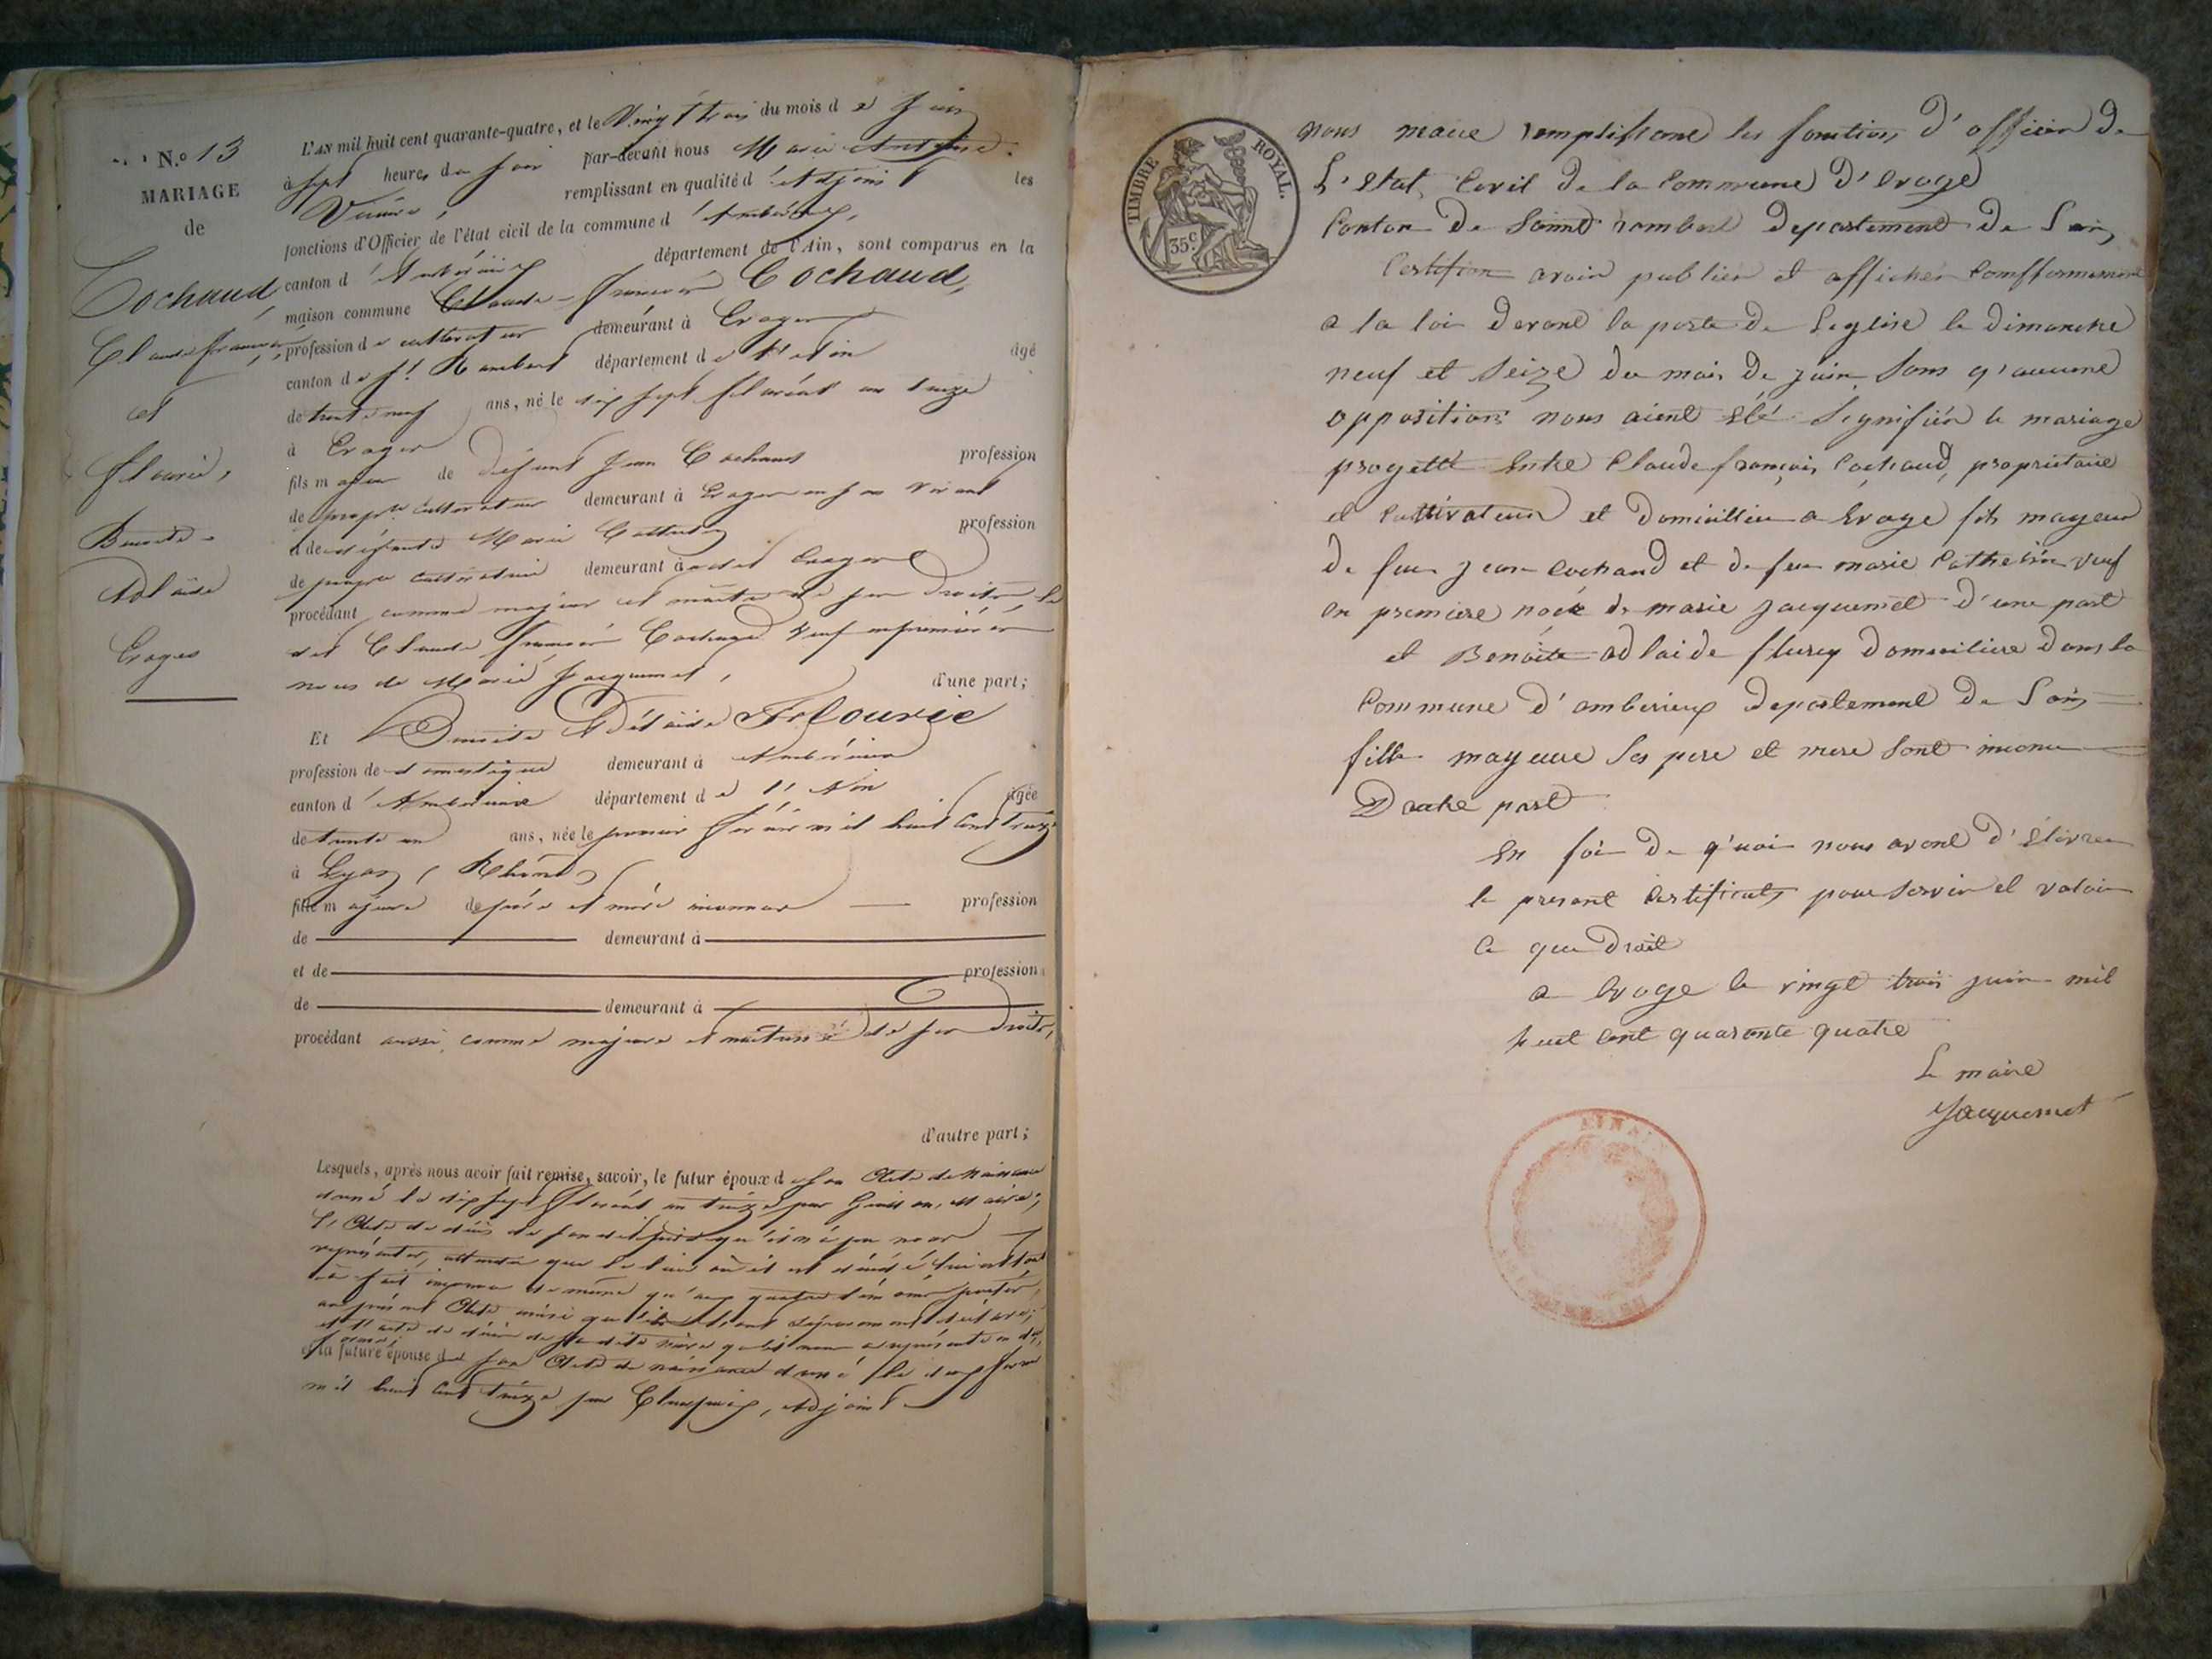 N.º 13
MARIAGE
de
Cochaud,
Claude françois
et
flourie,
Benoite
Adlaïde
Evoges
L'AN mil huit cent quarante-quatre, et le Vingt trois du mois de Juin
à sept heures du soir par-devant nous Marie Antoine
remplissant en qualité d'Adjoint les
fonctions d'Officier de l'état civil de la commune d'Ambérieux,
canton d'Ambérieux département de l'Ain, sont comparus en la
maison commune Claude-françois Cochaud,
profession de cultivateur demeurant à Evoges
canton de St Rambert département de l'Ain âgé
de trente neuf ans, né le dix sept floréal an treize
à Evoges
fils majeur de défunt Jean Cochaud profession
de propre cultivateur demeurant à Evoges en son vivant
et de défunte Marie profession
de propre cultivatrice demeurant audit Evoges
procédant comme majeur et maître de ses droits, le
dit Claude françois Cochaud veuf en premières
noces de Marie Jacquemet, d'une part;
Et Benoite Adélaïde Flourie
profession de domestique demeurant à Ambérieux
canton d'Ambérieux département de l'Ain âgée
de trente un ans, née le premier février mil huit cent treize
à Lyon (Rhône)
fille majeure de père et mère inconnus profession
de demeurant à
et de profession
de demeurant à
procédant aussi comme majeure et maîtresse de ses droits,
d'autre part;
Lesquels, après nous avoir fait remise, savoir, le futur époux de son Acte de Naissance
donné le dix sept floréal an treize par maire;
L'Acte de décès de son dit père qu'il n'a pu nous
représenter, attendu que le lieu où il est décédé lui est tout
à fait inconnu de même qu'aux quatre témoins
au présent Acte ainsi qu'ils
et l'acte de décès de sa dite mère
et la future épouse de son Acte de naissance donné le deux février
mil huit cent treize par adjoint
TIMBRE ROYAL.
35 c.
nous maire remplissant les fonctions d'officier de
L'Etat Civil de la Commune d'Evoge
Canton de Saint rambert Departement de Lain,
Certifion avoir publier et afficher Comfformement
a la loi devant la porte de Leglise le dimanche
neuf et Seize du mois de juin Sans q'aucune
opposition nous aient été Signifiér le mariage
progetté Entre Claude françois Cochaud, proprietaire
et Cultivateur et Domicillier a Evoge fils mayeur
de feu jean Cochaud et de feu marie Catherin veuf
en premiere noce de marie jacquemet d'une part
et Benoite adlaide flurey Domiciliere dans la
Commune d'amberieux Departement de Lain
fille mayeure Ses pere et mere Sont inconu
Dautre part
En foi de q'uoi nous avont d'Elivrer
le present Certificats pour Servir et valoir
Ce que Droit
a Evoge le vingt trois juin mil
huit Cent quarante quatre
Le maire
Jacquemet